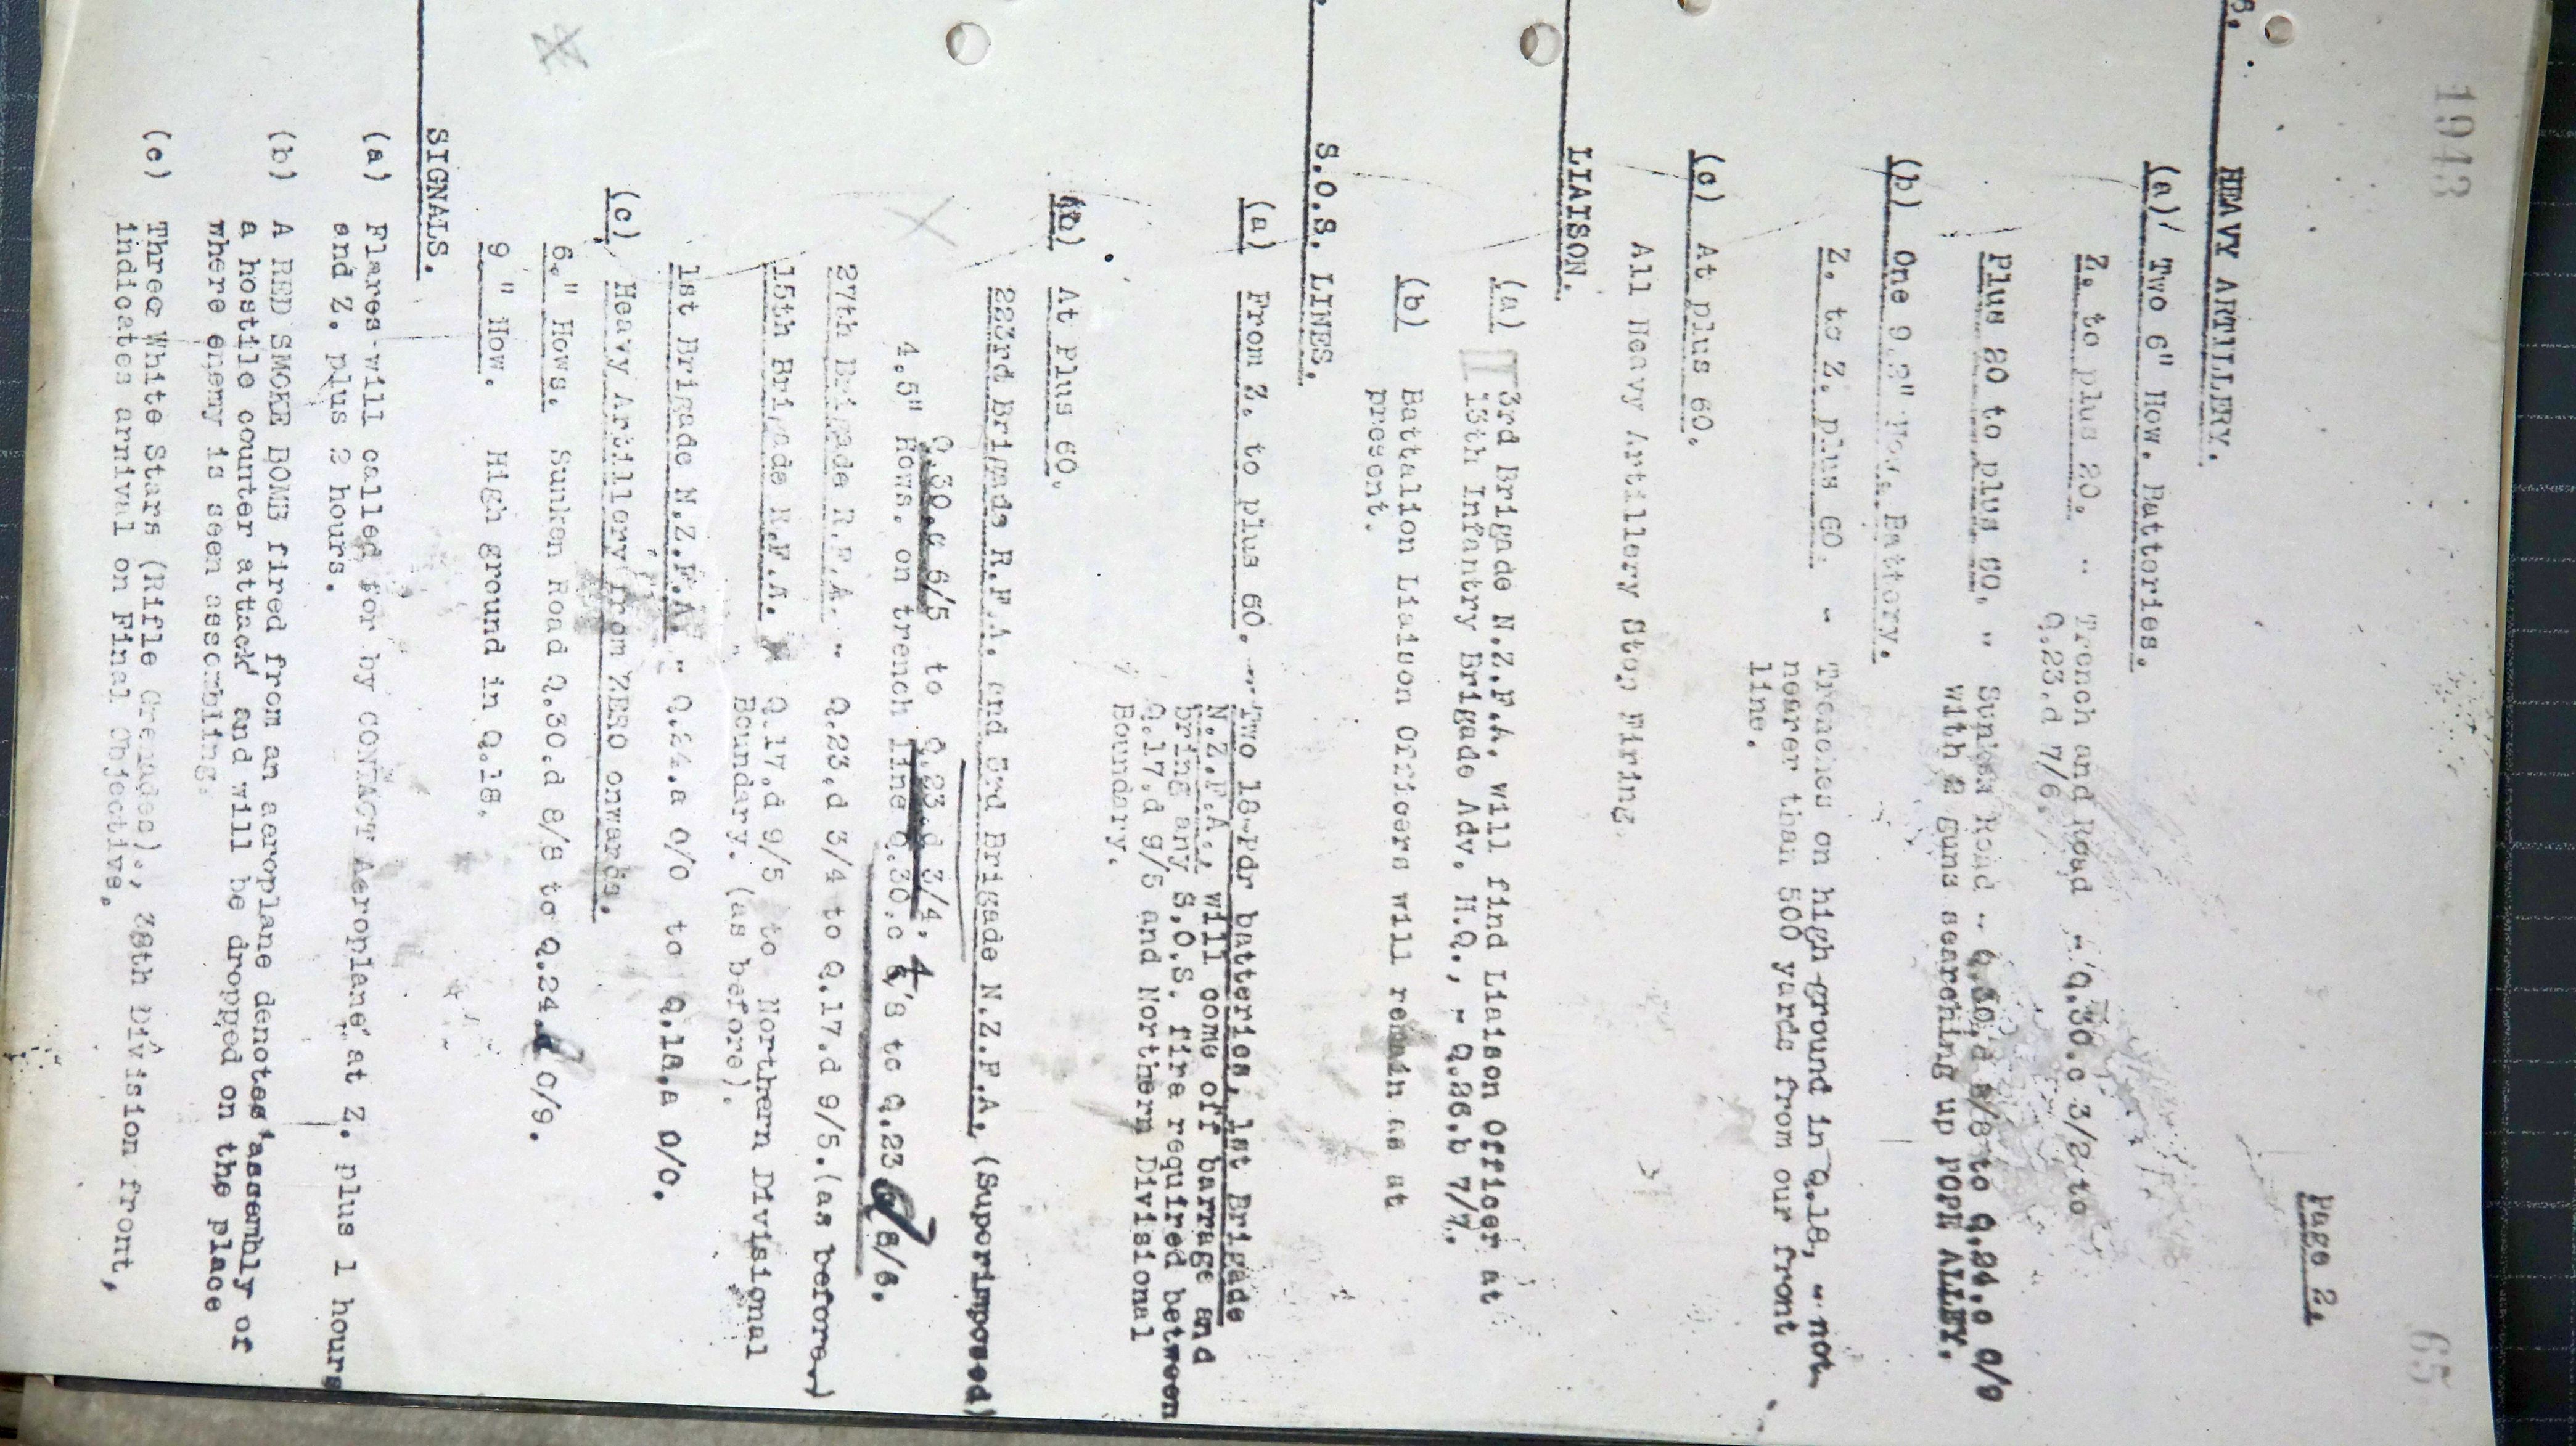 1943
65
Page 2.
HEAVY ARTILLERY.
(a) Two 6" How. Batteries.
Z. to plus 20. - Trench and Road - Q.30.c 3/2 to
Q.23.d 7/6.
Plus 20 to plus 60. - Sunken Road - Q.30.d 8/8 to Q.24.c 0/9
with 2 guns searching up POPE ALLEY.
(b) One 9.2" How. Battery.
Z. to Z. plus 60. - Trenches on high ground in Q.18, - not
nearer than 500 yards from our front
line.
(c) At plus 60.
All Heavy Artillery Stop Firing.
LIAISON.
(a) 3rd Brigade N.Z.F.A. will find Liaison Officer at
13th Infantry Brigade Adv. H.Q., - Q.26.b 7/7.
(b) Battalion Liaison Officers will remain as at
present.
S.O.S. LINES.
(a) From Z. to plus 60. - Two 18-Pdr batteries, 1st Brigade
N.Z.F.A., will come off barrage and
bring any S.O.S. fire required between
Q.17.d 9/5 and Northern Divisional
Boundary.
(b) At Plus 60.
223rd Brigade R.F.A. and 3rd Brigade N.Z.F.A. (Superimposed)
Q.30.c 6/5 to Q.23.d 3/4,
4.5" Hows. on trench line Q.30.c /8 to Q.23 8/6.
27th Brigade R.F.A. - Q.23.d 3/4 to Q.17.d 9/5.(as before)
15th Brigade R.F.A. Q.17.d 9/5 to Northern Divisional
Boundary. (as before).
1st Brigade N.Z.F.A. - Q.24.a 0/0 to Q.18.a 0/0.
(c) Heavy Artillery from ZERO onwards.
6." Hows. Sunken Road Q.30.d 8/8 to Q.24. 0/9.
9." How. High ground in Q.18.
SIGNALS.
(a) Flares will called for by CONTACT Aeroplane at Z. plus 1 hours
and Z. plus 2 hours.
(b) A RED SMOKE BOMB fired from an aeroplane denotes 'assembly of
a hostile counter attack' and will be dropped on the place
where enemy is seen assembling.
(c) Three White Stars (Rifle Grenades)., 38th Division front,
indicates arrival on Final Objective.